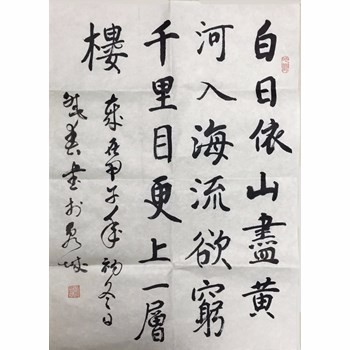 白日依山盡黃
河入海流欲窮
千里目更上一層
樓
歲在甲子年初冬日
書於泉城